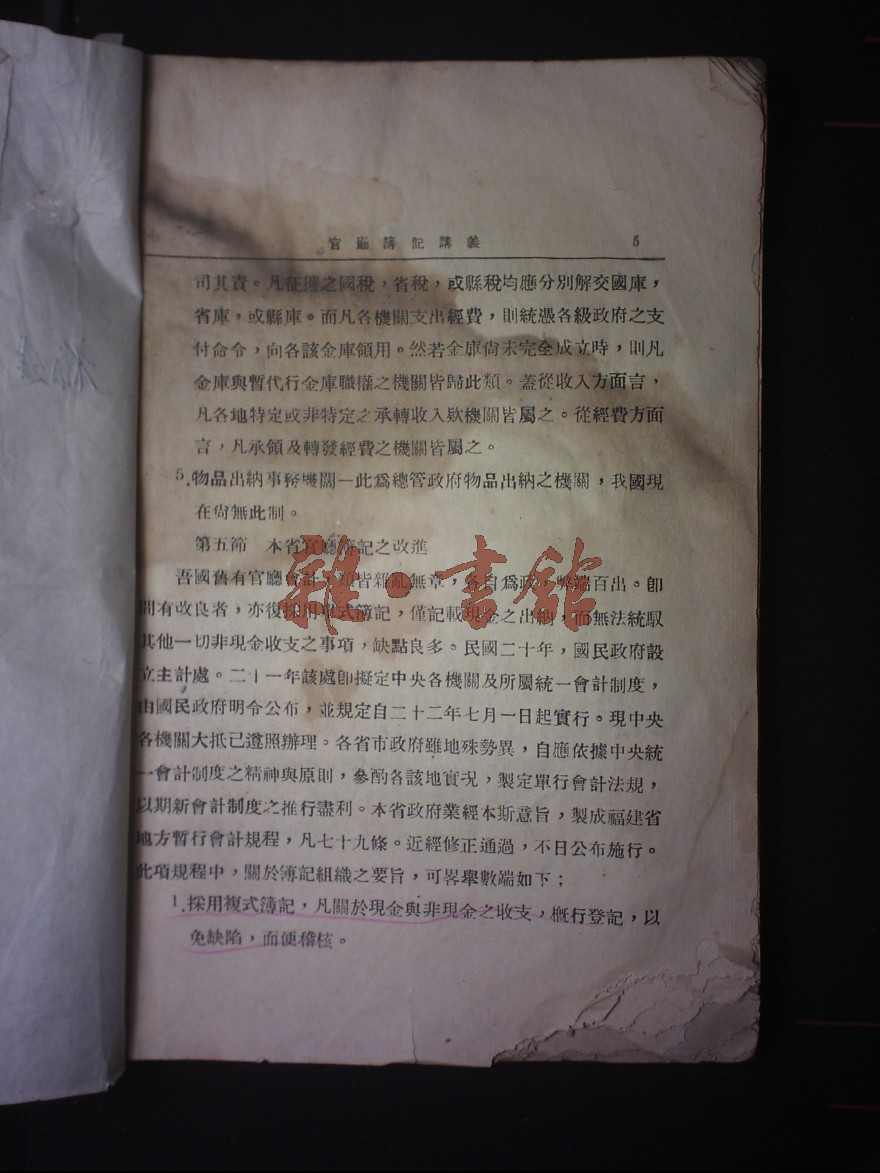 官廳簿記講義 5
司其責。凡征獲之國稅，省稅，或縣稅均應分別解交國庫，
省庫，或縣庫。而凡各機關支出經費，則統憑各級政府之支
付命令，向各該金庫領用。然若金庫尙未完全成立時，則凡
金庫與暫代行金庫職權之機關皆歸此類。蓋從收入方面言，
凡各地特定或非特定之承轉收入欵機關皆屬之。從經費方面
言，凡承領及轉發經費之機關皆屬之。
5.物品出納事務機關—此爲總管政府物品出納之機關，我國現
在尙無此制。
第五節 本省官廳簿記之改進
吾國舊有官廳會計，類皆雜亂無章，各自爲政，弊端百出。卽
間有改良者，亦復採用單式簿記，僅記載現金之出納，而無法統馭
其他一切非現金收支之事項，缺點良多。民國二十年，國民政府設
立主計處。二十一年該處卽擬定中央各機關及所屬統一會計制度，
由國民政府明令公布，並規定自二十二年七月一日起實行。現中央
各機關大抵已遵照辦理。各省市政府雖地殊勢異，自應依據中央統
一會計制度之精神與原則，參酌各該地實况，製定單行會計法規，
以期新會計制度之推行盡利。本省政府業經本斯意旨，製成福建省
地方暫行會計規程，凡七十九條。近經修正通過，不日公布施行。
此項規程中，關於簿記組織之要旨，可畧舉數端如下；
1.採用複式簿記，凡關於現金與非現金之收支，槪行登記，以
免缺陷，而便稽核。
雜·書館